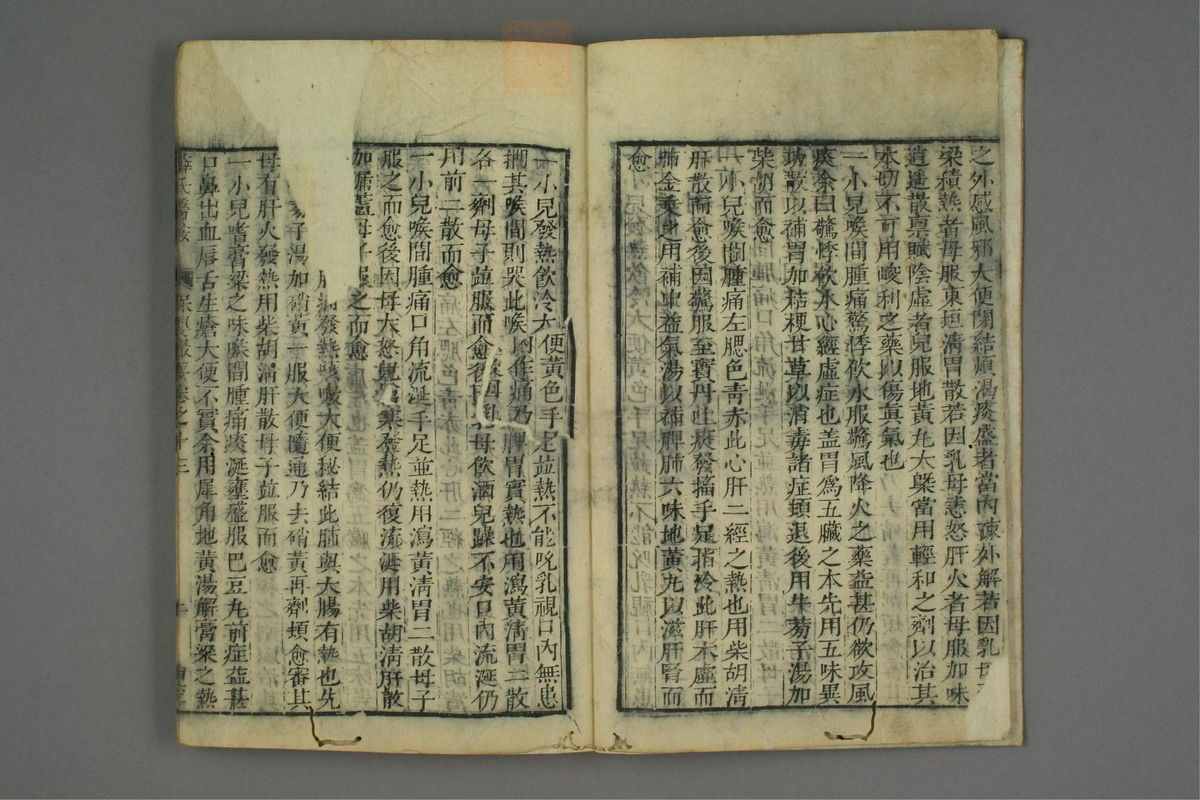 之外感風邪大便閉結煩渴痰盛者當內疎外解若因乳母
梁積熱者母服東垣清胃散若因乳母恚怒肝火者母服加味
逍遙散禀賦陰虛者兒服地黃丸大槩當用輕和之劑以治其
本切不可用峻利之藥以傷眞氣也
一小兒喉間腫痛驚悸飲水服驚風降火之藥益甚仍欲攻風
痰余曰驚悸飲水心經虛症也盖胃爲五臟之本先用五味異
功散以補胃加桔梗甘草以消毒諸症頓退後用牛蒡子湯加
柴胡而愈
一小兒喉間腫痛左腮色靑赤此心肝二經之熱也用柴胡淸
肝散而愈後因驚服至寳丹吐痰發搐手足指冷此肝木虛而
肺金乗之用補中益氣湯以補脾肺六味地黃丸以滋肝腎而
愈
一小兒發熱飲冷大便黃色手足並熱不能吮乳視口內無患
捫其喉間則哭此喉間作痛乃脾胃實熱也用瀉黃淸胃二散
各一劑母子並服而愈後因母飲酒兒躁不安口內流涎仍
用前二散而愈
一小兒喉間腫痛口角流涎手足並熱用瀉黃淸胃二散母子
服之而愈後因母大怒寒發熱仍復流涎用柴胡淸肝散
加母子服之而愈
發熱咳大便秘結此肺與大腸有熱也先
湯加硝黃一服大便隨通乃去硝黃再劑頓愈審其
母有肝火發熱用柴胡淸肝散母子並服而愈
一小兒嗜膏粱之味喉間腫痛痰涎壅盛服巴豆丸前症益甚
口鼻出血唇舌生瘡大便不實余用犀角地黃湯解膏粱之熱
薛氏醫案 保嬰撮要卷之十三